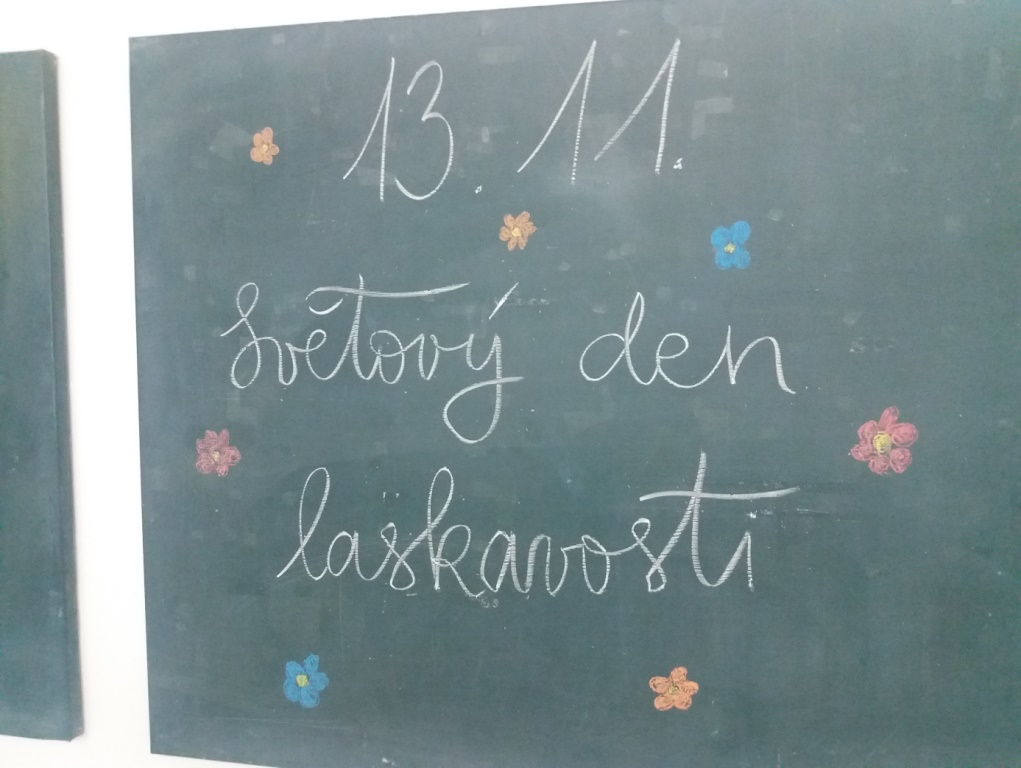 13. 11.
Světový den
laskavosti